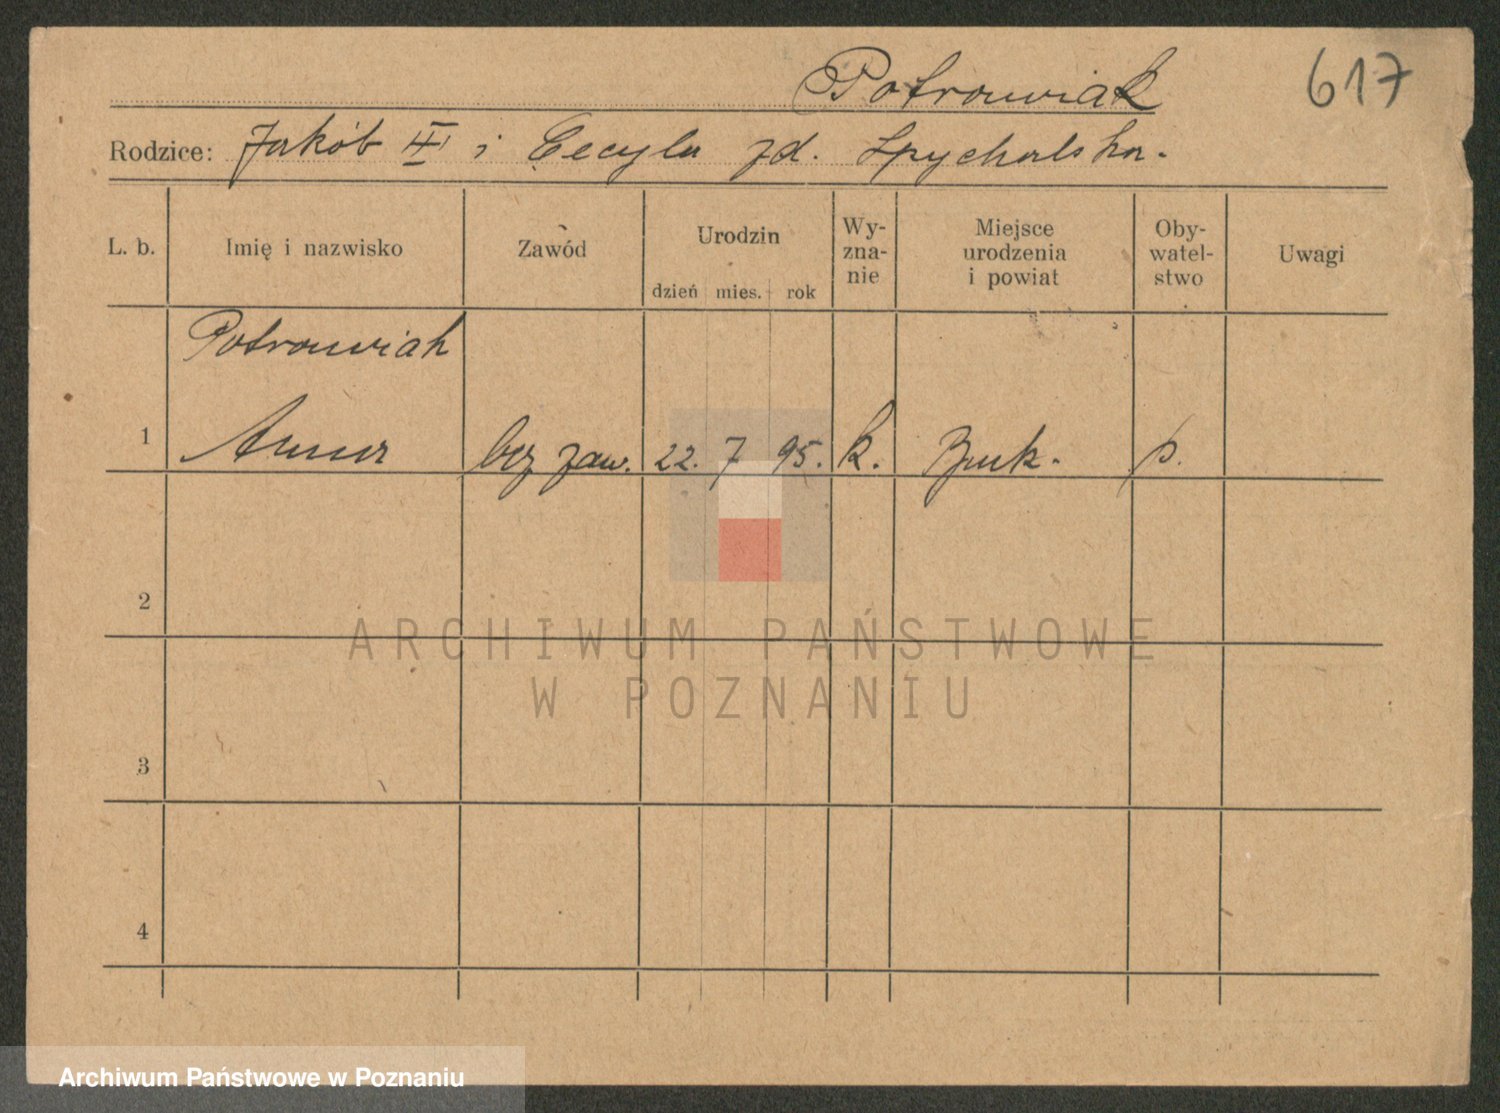 Potrawiak 617
Rodzice: Jakób II i Cecyla zd. Spychalska.
L. b. Imię i nazwisko Zawód Urodzin dzień mies. rok Wy-zna-nie Miejsce urodzenia i powiat Oby-watel-stwo Uwagi
Potrawiak
1 Anna bez zaw. 22. 7 95. k. Buk. p.
2
ARCHIWUM PAŃSTWOWE
W POZNANIU
3
4
Archiwum Państwowe w Poznaniu